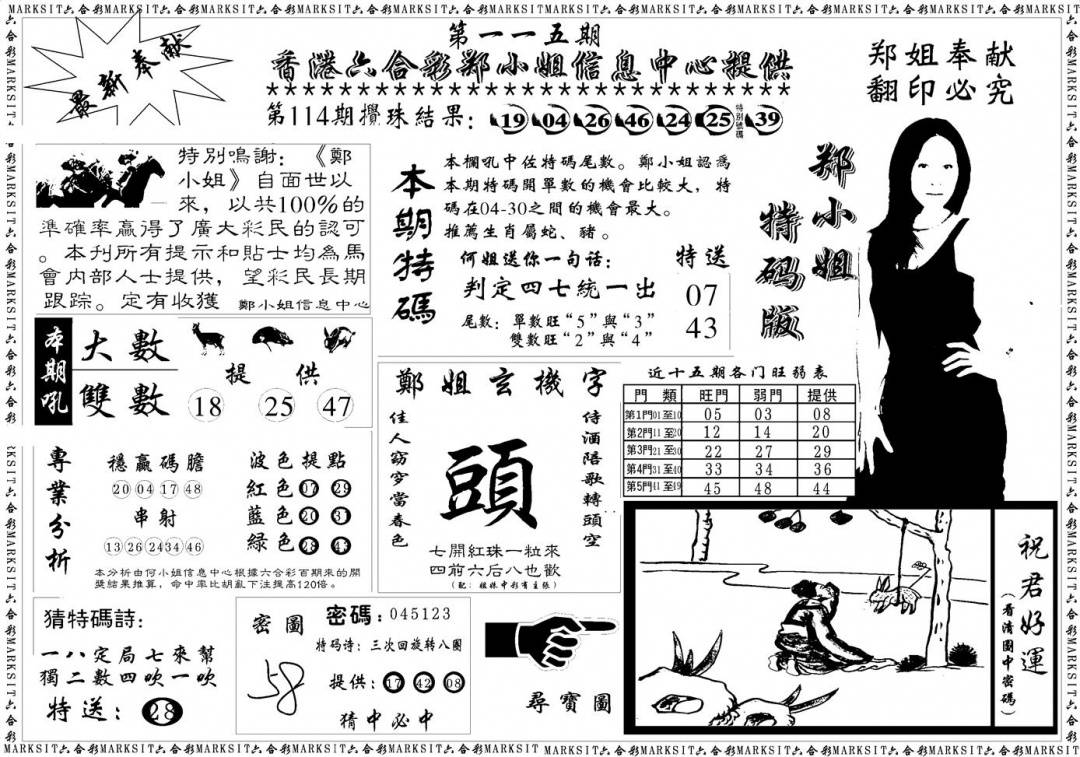 MARKSIT六合彩MARKSIT六合彩MARKSIT六合彩MARKSIT六合彩MARKSIT六合彩MARKSIT六合彩MARKSIT六合彩MARKSIT六合彩
最新奉献
第一一五期
香港六合彩郑小姐信息中心提供
第114期攪珠結果: 19 04 26 46 24 25 特別號碼 39
郑姐奉献
翻印必究
郑小姐
特码版
特別鳴謝:《鄭
小姐》自面世以
來,以共100%的
準確率贏得了廣大彩民的認可
。本刊所有提示和貼士均為馬
會內部人士提供,望彩民長期
跟踪。定有收獲 鄭小姐信息中心
本期特碼
本欄吼中伍特碼尾數。鄭小姐認爲
本期特碼開單數的機會比較大,特
碼在04-30之間的機會最大。
推薦生肖屬蛇、豬。
何姐送你一句话:
判定四七統一出
尾數:單數旺“5”與“3”
雙數旺“2”與“4”
特送
07
43
本期吼
大數
雙數
提供
18 25 47
專業分析
穩贏碼膽
20 04 17 48
串射
13 26 24 34 46
波色提點
紅色 07 29
藍色 20 31
綠色 28 43
本分析由何小姐信息中心根據六合彩百期來的開
獎結果推算,命中率比胡亂下注提高120倍。
鄭姐玄機字
佳人窈窕當春色
頭
侍酒陪歌轉頭空
七開紅珠一粒來
四前六后八也歡
近十五期各门旺弱表
門類 旺門 弱門 提供
第1門01至10 05 03 08
第2門11至20 12 14 20
第3門21至30 22 27 29
第4門31至40 33 34 36
第5門41至49 45 48 44
猜特碼詩:
一八定局七來幫
獨二數四吹一吹
特送: 28
密圖
58
密碼:045123
特码诗:三次回旋转八圈
提供: 17 42 08
猜中必中
尋寶圖
祝君好運
(看清圖中密碼)
MARKSIT六合彩MARKSIT六合彩MARKSIT六合彩MARKSIT六合彩MARKSIT六合彩MARKSIT六合彩MARKSIT六合彩MARKSIT六合彩